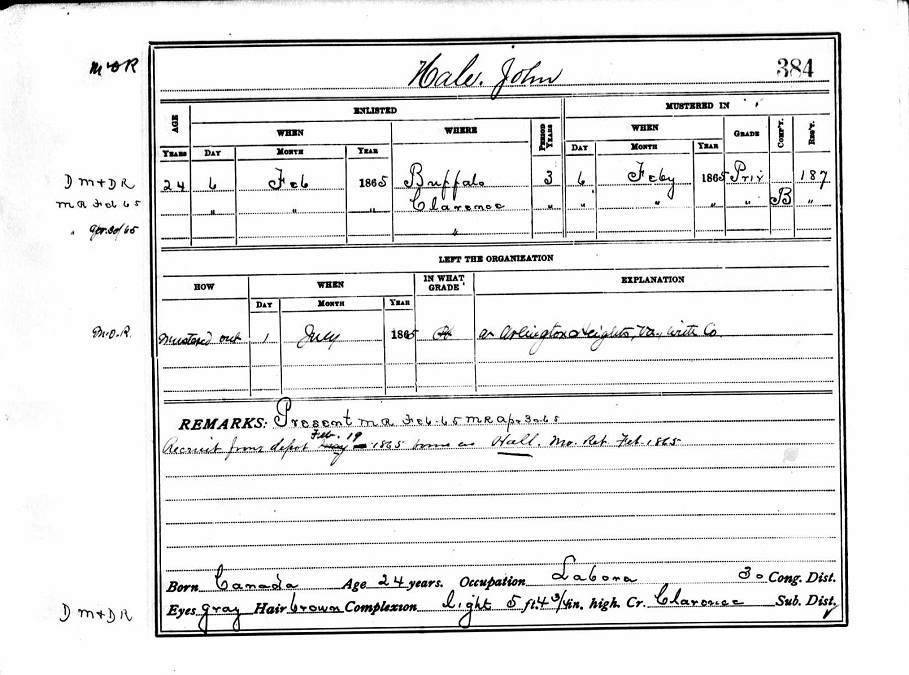 M.O.R
Hale, John 384
ENLISTED MUSTERED IN
AGE WHEN WHERE PERIOD YEARS WHEN GRADE COMP'Y. REG'T.
YEARS DAY MONTH YEAR DAY MONTH YEAR
D M & D R 24 6 Feb 1865 Buffalo 3 6 Feby 1865 Priv 187
M R Feb 65 " " " Clarence " " " " " B "
" Apr 30/65 "
LEFT THE ORGANIZATION
HOW WHEN IN WHAT GRADE EXPLANATION
DAY MONTH YEAR
M.O.R. Mustered out 1 July 1865 at Arlington Heights, Va, with Co
REMARKS: Present M R Feb. 65 M R Apr 30 65
Feb. 19
Recruit from depot 1865 borne as Hall. Mo. Ret. Feb 1865
Born Canada Age 24 years. Occupation Labora 30 Cong. Dist.
D M & D R Eyes gray Hair brown Complexion light 5 ft. 4 3/4 in. high. Cr. Clarence Sub. Dist.